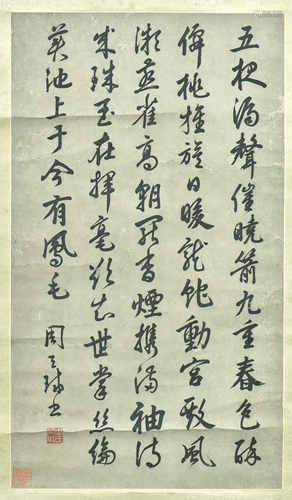 五夜漏聲催曉箭九重春色醉
僊桃旌旂日暖龍蛇動宮殿風
微燕雀高朝罷香煙攜滿袖詩
成珠玉在揮毫欲知世掌絲綸
美池上于今有鳳毛 周天球書